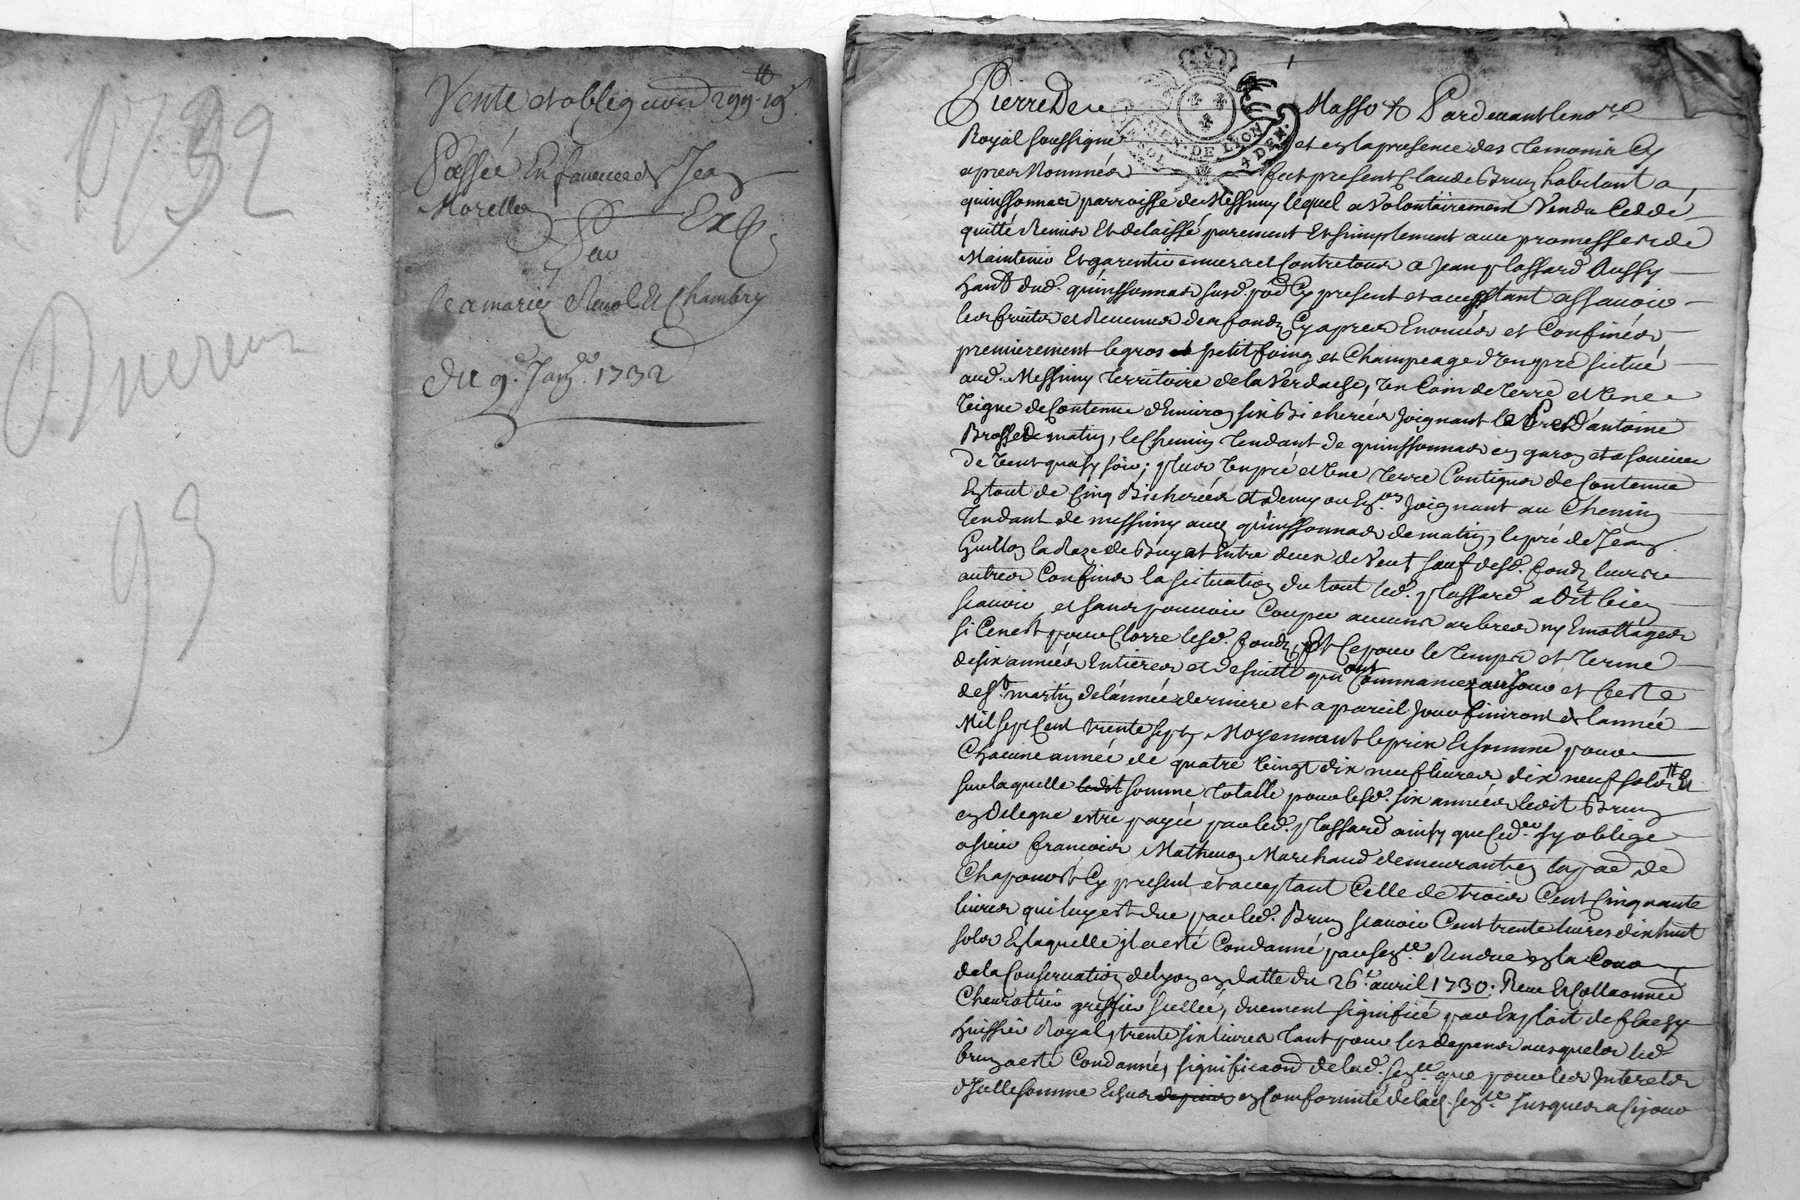 1732
93
Vente et obligation 299 ₶ 19 s
Passée En faveur de Jean
Morellon
Par
Les mariez Renol Et Chambry
Du 9e Janv. 1732
GEN. DE LYON
4 DEN.
SOL
Pierre De Masso & Pardevant le no.re
Royal soussigné et en la presence des temoins Cy
apres Nommés fut present Claude Brun habitant a
quinssonnas parroisse de Messimy lequel a volontairement Vendu Ceddé
quitté Remis Et delaissé purement Et simplement avec promesse de
Maintenir Et garentir envers et Contre tous a Jean Plassard Aussy
hant. dud. quinssonnas susd. psse Cy present et acceptant assavoir
les fruits et Revenus des fonds Cy apres Enoncés et Confinés
premierement le gros et petit foing et Champeage d'un pré situé
aud. Messimy territoire de la Verdaise, un Coin de terre et une
Vigne de Contenue d'Environ six Bicherées Joignant le Pré d'antoine
Brosse de matin, le Chemin tendant de quinssonnas en garon et a soucieu
de Vent quasy soir; plus un pré et une terre Contigus de Contenue
En tout de Cinq Bicherées et demy ou Envon Joignant au Chemin
tendant de messimy aud quinssonnas de matin, le pré de Jean
Guillon la Raze de Buyat Entre deux de Vent sauf desd. fonds leurs
autres Confins la situation du tout led. Plassard a dit bien
scavoir et sans pouvoir Couper aucuns arbres ny Emottages
si Ce n'est pour Clorre lesd. fonds, Et Ce pour le temps et terme
de six années Entieres et de suitte qui ont Commancez au Jour et feste
de St martin de l'année derniere et a pareil Jour finiront de l'année
Mil sept Cent trente sept, Moyennant le prix Et somme pour
Chacune année de quatre Vingt dix neuf livres dix neuf sols
sur laquelle ledit somme totalle pour lesd. six années ledit Brun
en delegue estre payée par led. Plassard ainsy que led. s'y oblige
a sieur francois Mathevon Marchand demeurant en la psse de
Chaponost Cy present et acceptant Celle de trois Cent Cinquante
livres qui luy est due par led. Brun scavoir Cent trente livres dix huit
sols En laquelle il a esté Condanné par sen.ce Rendue en la Cour
de la Conservation de Lyon en datte du 26.e avril 1730. Reue Et Collationnée
Chevrottier greffier scellée, duement signifiée par Exploit de flachy
huissier Royal, trente six livres tant pour les depens ausquels led.
brun a esté Condanné, signification de lad. sen.ce que pour les Interets
d'Icelle somme Echus en Conformité de lad. sen.ce Jusques a Ce jour